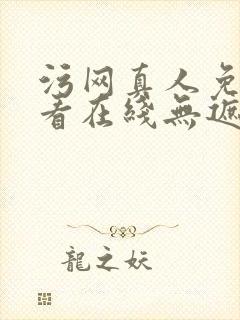 污网真人免
看在綫無遮
龍之妖